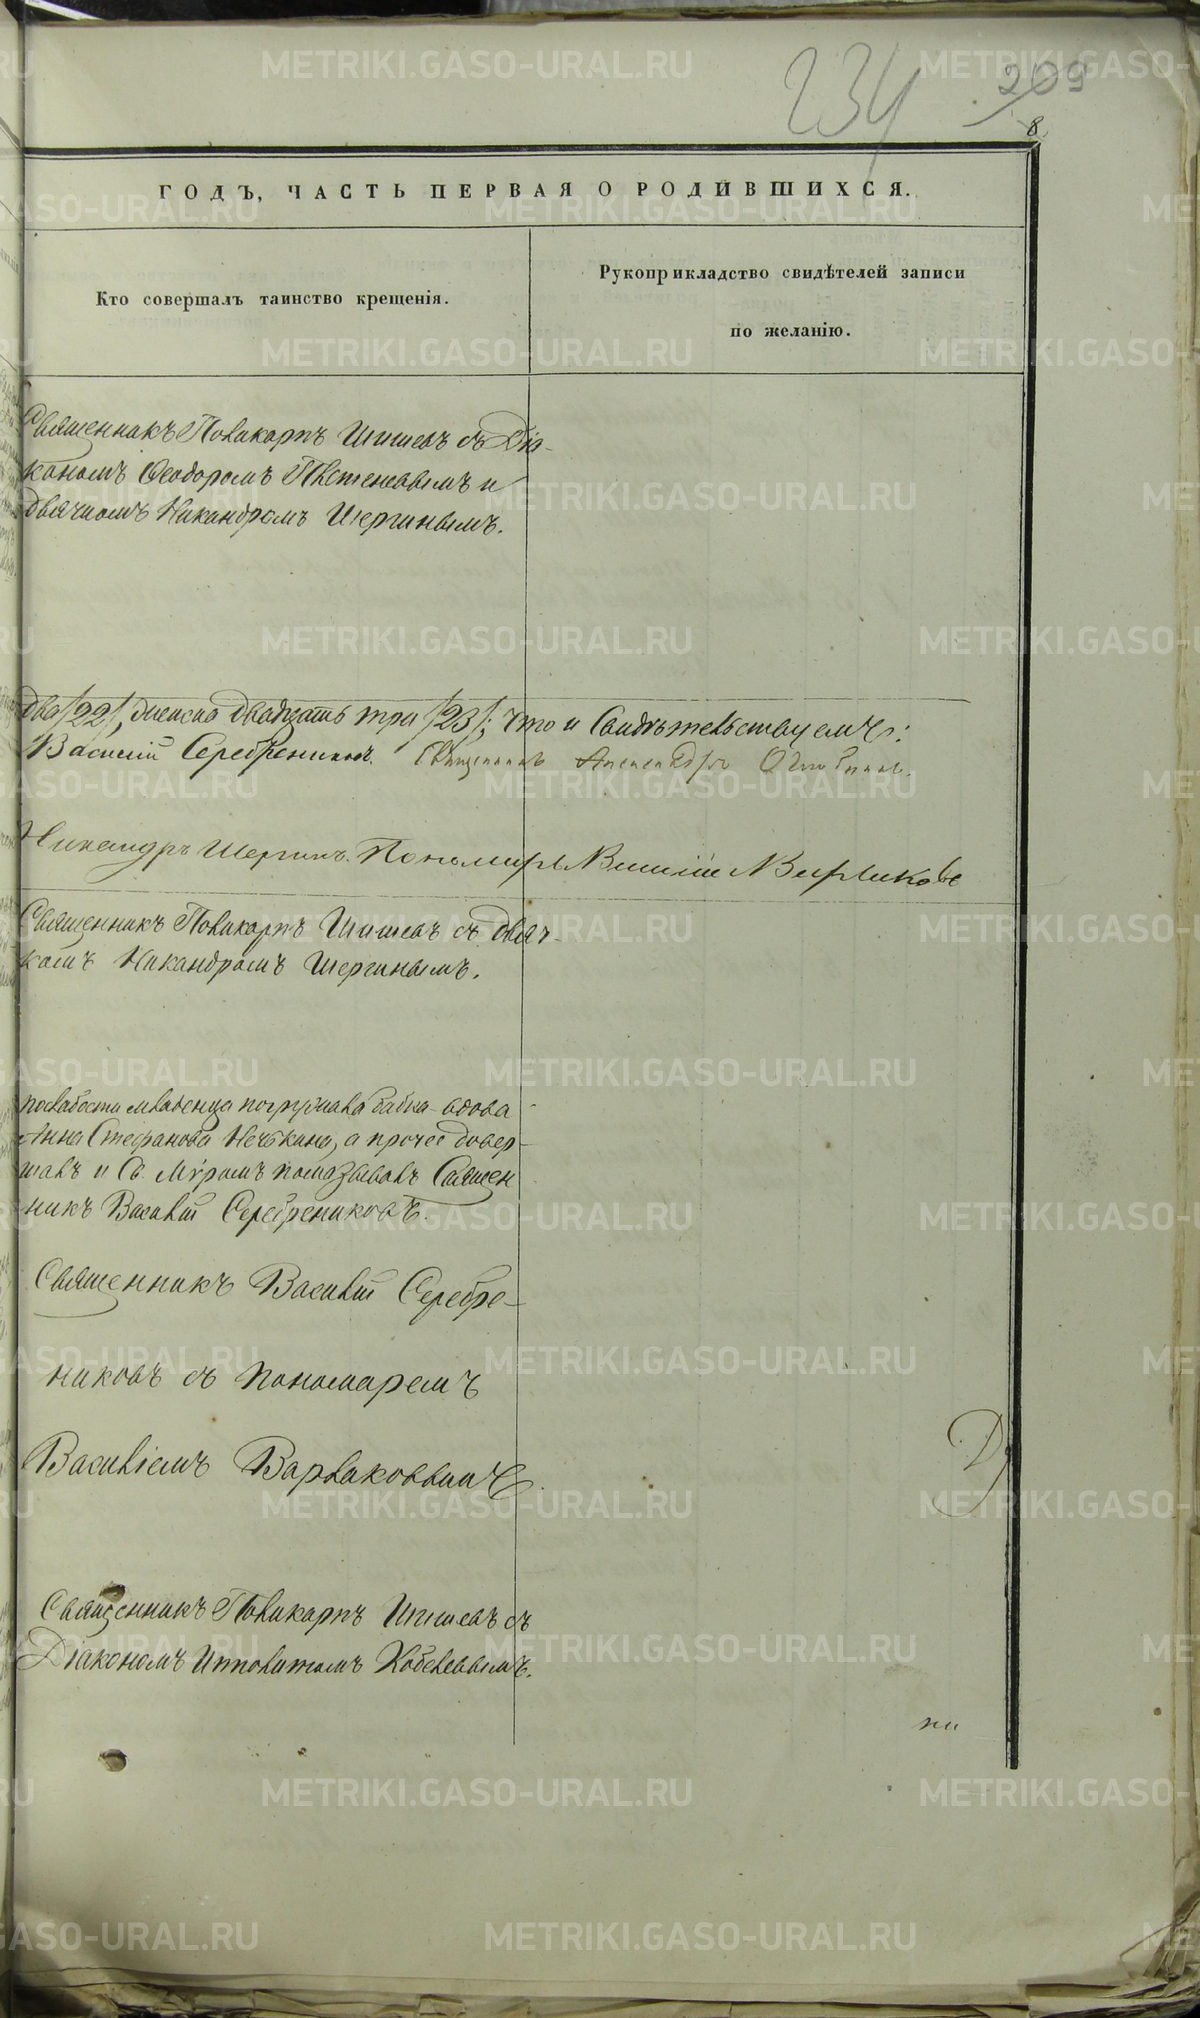 234 209
8
ГОДЪ, ЧАСТЬ ПЕРВАЯ О РОДИВШИХСЯ.
Кто совершалъ таинство крещенія.
Рукоприкладство свидѣтелей записи
по желанію.
Священникъ Поликарпъ Шишевъ съ Діа-
кономъ Ѳеодоромъ и
дьячкомъ Никандромъ Шергинымъ.
два /22/, женска двадцать три /23/; что и свидѣтельствуемъ:
Василій Серебрениковъ. Священникъ Александръ
Никандръ Шергинъ. Пономарь Василій Варлаковъ
Священникъ Поликарпъ Шишевъ съ дьяч-
комъ Никандромъ Шергинымъ.
по слабости младенца погружала бабка вдова
Анна Стефанова а прочее довер-
шалъ и Св. Мѵромъ помазывалъ Священ
никъ Василій Серебрениковъ.
Священникъ Василій Серебре-
никовъ съ пономаремъ
Василіемъ Варлаковымъ.
Священникъ Поликарпъ Шишевъ съ
Діакономъ Ипполитомъ Кобелевымъ.
METRIKI.GASO-URAL.RU